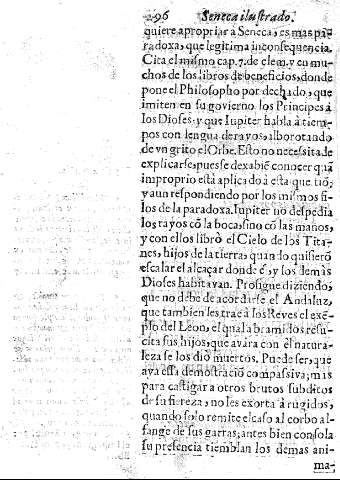 296 Seneca ilustrado.
quiere apropriar a Seneca, es mas pa-
radoxa, que legitima inconsequencia.
Cita el mismo cap. 7. de clem. y en mu-
chos de los libros de beneficios, donde
pone el Philosopho por dechado, que
imiten en su govierno los Principes à
los Dioses: y que Iupiter habla à tiem-
pos con lengua de rayos, alborotando
de vn grito el Orbe. Esto no necessita de
explicarse, pues se dexa biē conocer quā
improprio està aplicado à esta questiō;
y aun respondiendo por los mismos fi-
los de la paradoxa. Iupiter no despedia
los rayos cō la boca, sino cō las manos,
y con ellos librò el Cielo de los Tita-
nes, hijos de la tierra, quando quisierō
escalar el alcaçar donde él, y los demàs
Dioses habitavan. Prosigue diziendo,
que no debe de acordarse el Andaluz,
que tambien les trae à los Reyes el exē-
plo del Leon, el qual a bramidos resu-
cita sus hijos, que avara con él natura-
leza se los diò muertos. Puede ser, que
aya essa demostraciō compassiva; mas
para castigar a otros brutos subditos
de su fiereza, no les exorta à rugidos,
quando solo remite el caso al corbo al-
fange de sus garras; antes bien con sola
su presencia tiemblan los demas ani-
ma-